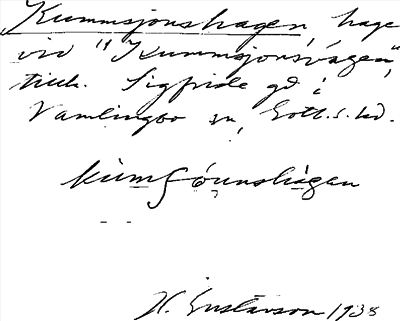 Kummsjonshagen, hage
vid "Kummsjonsvägen",
tillh. Sigfride gd i
Vamlingbo sn, Gotl. s. hd.
kùmʃóunshàgen
H. Gustavson 1938